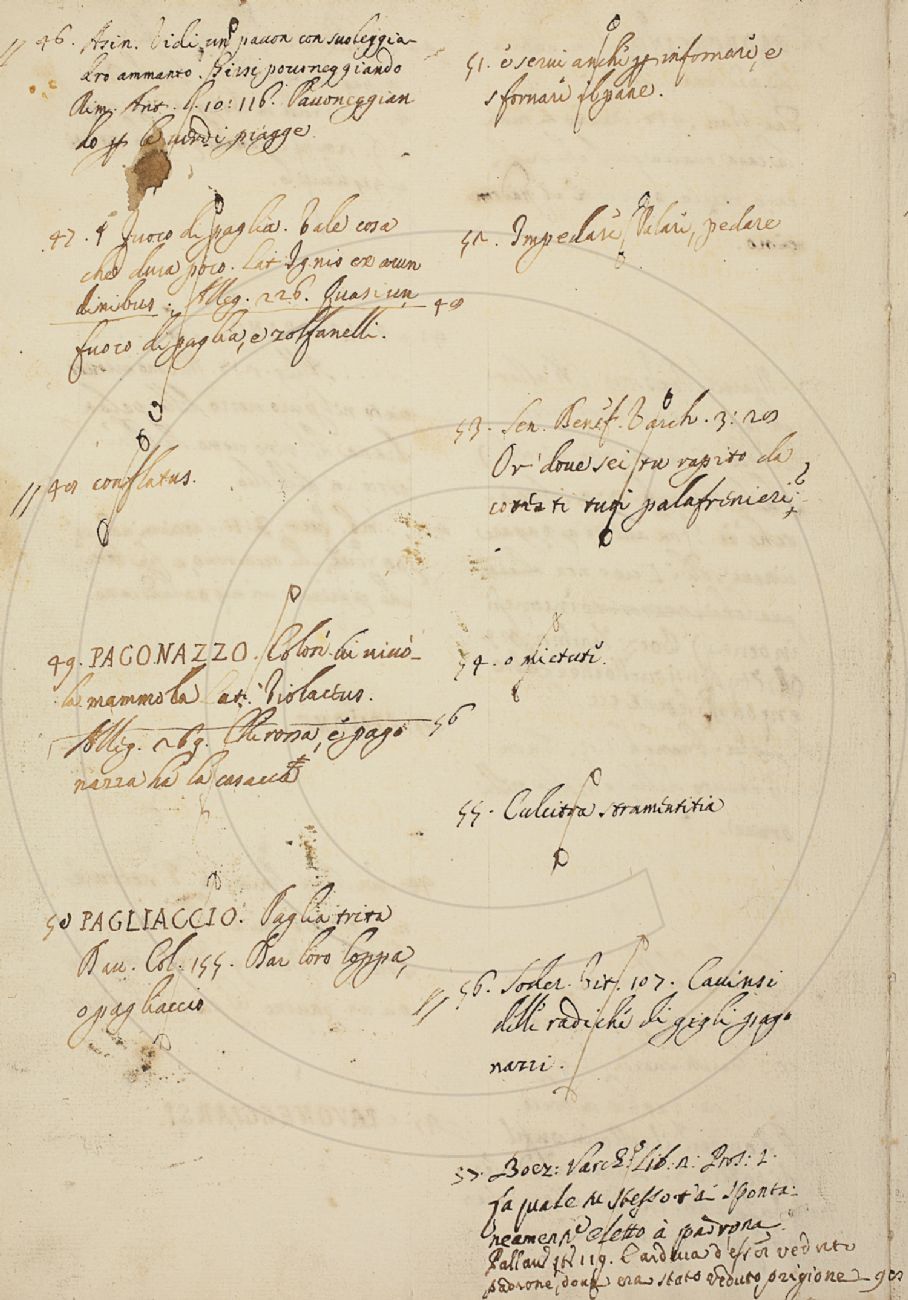 46. Asin. Vidi un pavon con suo leggia-
dro ammanto. Girsi pavoneggiando
Rim. Ant. f. 10: 116. Pavoneggian
do p le verdi piagge
47. Fuoco di paglia. Vale cosa
che dura poco. Lat. Ignis ex arun
dinibus. Alleg. 226. Quasi un 48
fuoco di paglia, e zolfanelli.
48 conflatus.
49. PAGONAZZO. Colore di vivo-
la mammola Lat. Violaceus.
Alleg. 269. Che rossa, e pago 56
nazza ha la casacca
50 PAGLIACCIO. Paglia trita
Dav. Col. 155. Dar loro loppa,
o pagliaccio
51. e servi anche p infornare, e
sfornare il pane.
52. Impedare, Palare, pedare
53. Sen. Benef. Varch. 3: 28
Or dove sei tu rapito da
cotesti tuoi palafrenieri
54. o mietute.
55. Culcitra stramentitia
56. Soder. Vit. 107. Cavinsi
delle radiche di gigli pago
nazzi.
57. Boez: Varch: Lib. 2: Pros: 1.
la quale tu stesso t'ai sponta:
neamente eletto à padrona
Pallav. 119. d'esser veduto
padrone, dove era stato veduto prigione 98